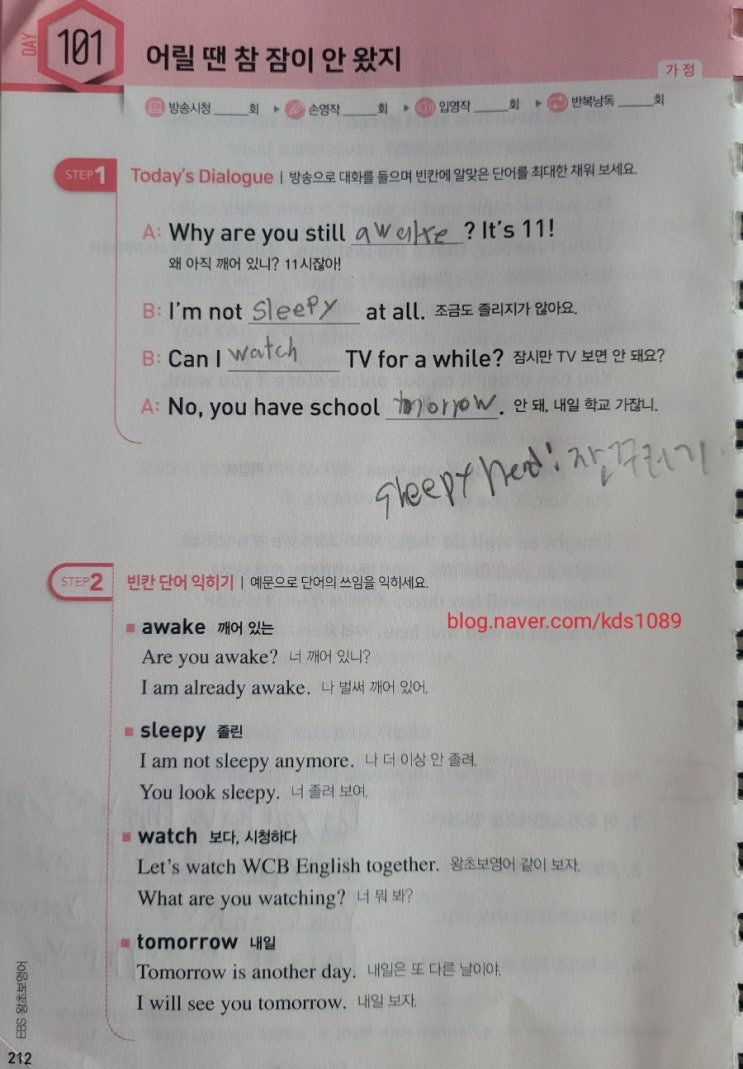 DAY 101 어릴 땐 참 잠이 안 왔지
가정
방송시청 ____회 ▶ 손영작 ____회 ▶ 입영작 ____회 ▶ 반복낭독 ____회
STEP 1 Today's Dialogue | 방송으로 대화를 들으며 빈칸에 알맞은 단어를 최대한 채워 보세요.
A: Why are you still awake? It's 11!
왜 아직 깨어 있니? 11시잖아!
B: I'm not sleepy at all. 조금도 졸리지가 않아요.
B: Can I watch TV for a while? 잠시만 TV 보면 안 돼요?
A: No, you have school tomorrow. 안 돼, 내일 학교 가잖니.
sleepy head: 잠꾸러기
STEP 2 빈칸 단어 익히기 | 예문으로 단어의 쓰임을 익히세요.
blog.naver.com/kds1089
awake 깨어 있는
Are you awake? 너 깨어 있니?
I am already awake. 나 벌써 깨어 있어.
sleepy 졸린
I am not sleepy anymore. 나 더 이상 안 졸려.
You look sleepy. 너 졸려 보여.
watch 보다, 시청하다
Let's watch WCB English together. 왕초보영어 같이 보자.
What are you watching? 너 뭐 봐?
tomorrow 내일
Tomorrow is another day. 내일은 또 다른 날이야.
I will see you tomorrow. 내일 보자.
EBS 왕초보영어
212